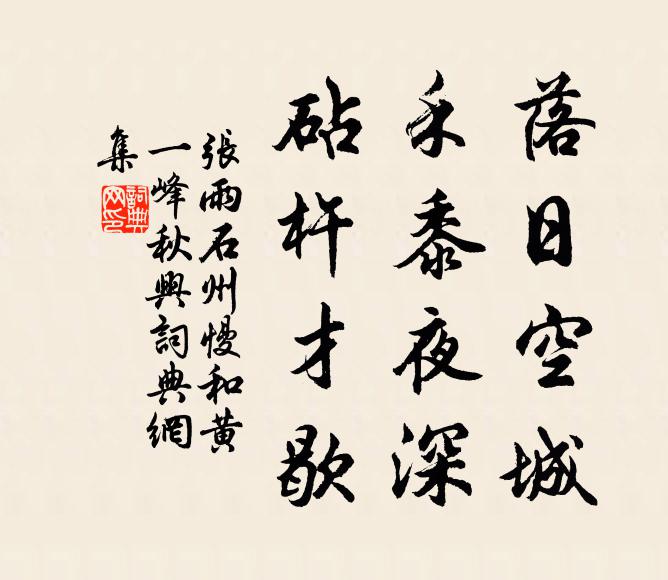 落日空城
禾黍夜深
砧杵才歇
張雨石州慢和黄
一峰秋興詞典網
集
詞典
网印